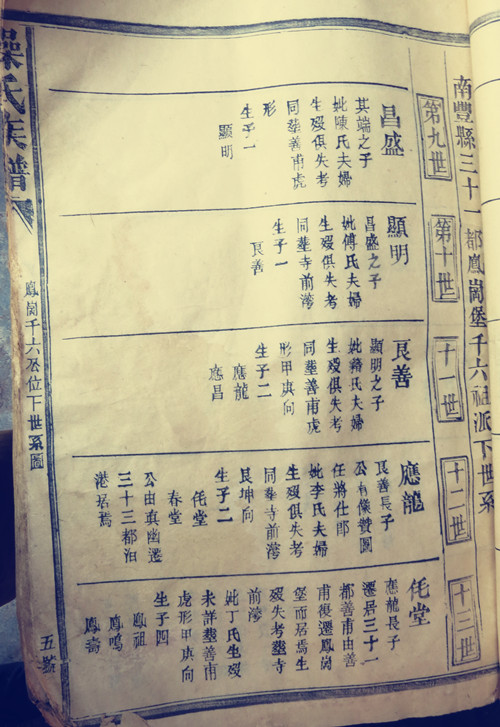 南豐縣三十一都鳳崗堡千六祖派下世系
第九世
昌盛
其端之子
妣陳氏夫婦
生歿俱失考
同𦵏善甫虎
形
生子一
顯明
第十世
顯明
昌盛之子
妣傅氏夫婦
生歿俱失考
同𦵏寺前
生子一
艮善
十一世
艮善
顯明之子
妣 氏夫婦
生歿俱失考
同𦵏善甫虎
形甲庚向
生子二
應龍
應昌
十二世
應龍
艮善長子
公有像贊圖
任將仕郎
妣李氏夫婦
生歿俱失考
同𦵏寺前
艮坤向
生子二
仛堂
春堂
公由 遷
三十三都泊
港居焉
十三世
仛堂
應龍長子
遷居三十一
都善甫由善
甫復遷鳳崗
堡而居焉生
歿失考𦵏寺
前
妣丁氏生歿
未詳𦵏善甫
虎形甲庚向
生子四
鳳祖
鳳鳴
鳳
氏族譜
鳳崗千六公位下世系圖
五